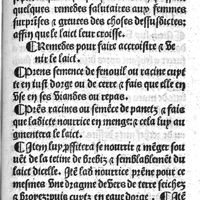 quelques remedes salutaires aux femmes
surprises & greuees des choses dessusdictes,
affin que le laict leur croisse.
¶Remedes pour faire accroistre & ve
nir le laict.
¶Prens semence de fenouil ou racine cuyt
te en iust dorge ou de terre & fais que elle en
vse en ses viandes ou repas.
¶Prēs racines ou semēce de panetz, & fais
que ladicte nourrice en menge: & cela luy au
gmentera le laict.
¶Itē luy, pffitera se nourrir a mēger sou
uēt de la tetine de brebis & semblablemēt du
laict dicelle. Itē lad nourrice prēne pour ce
mesmes vne dragme de vers de terre seichez
& broyez: puis cuytz en eaue dorge. ¶Itē